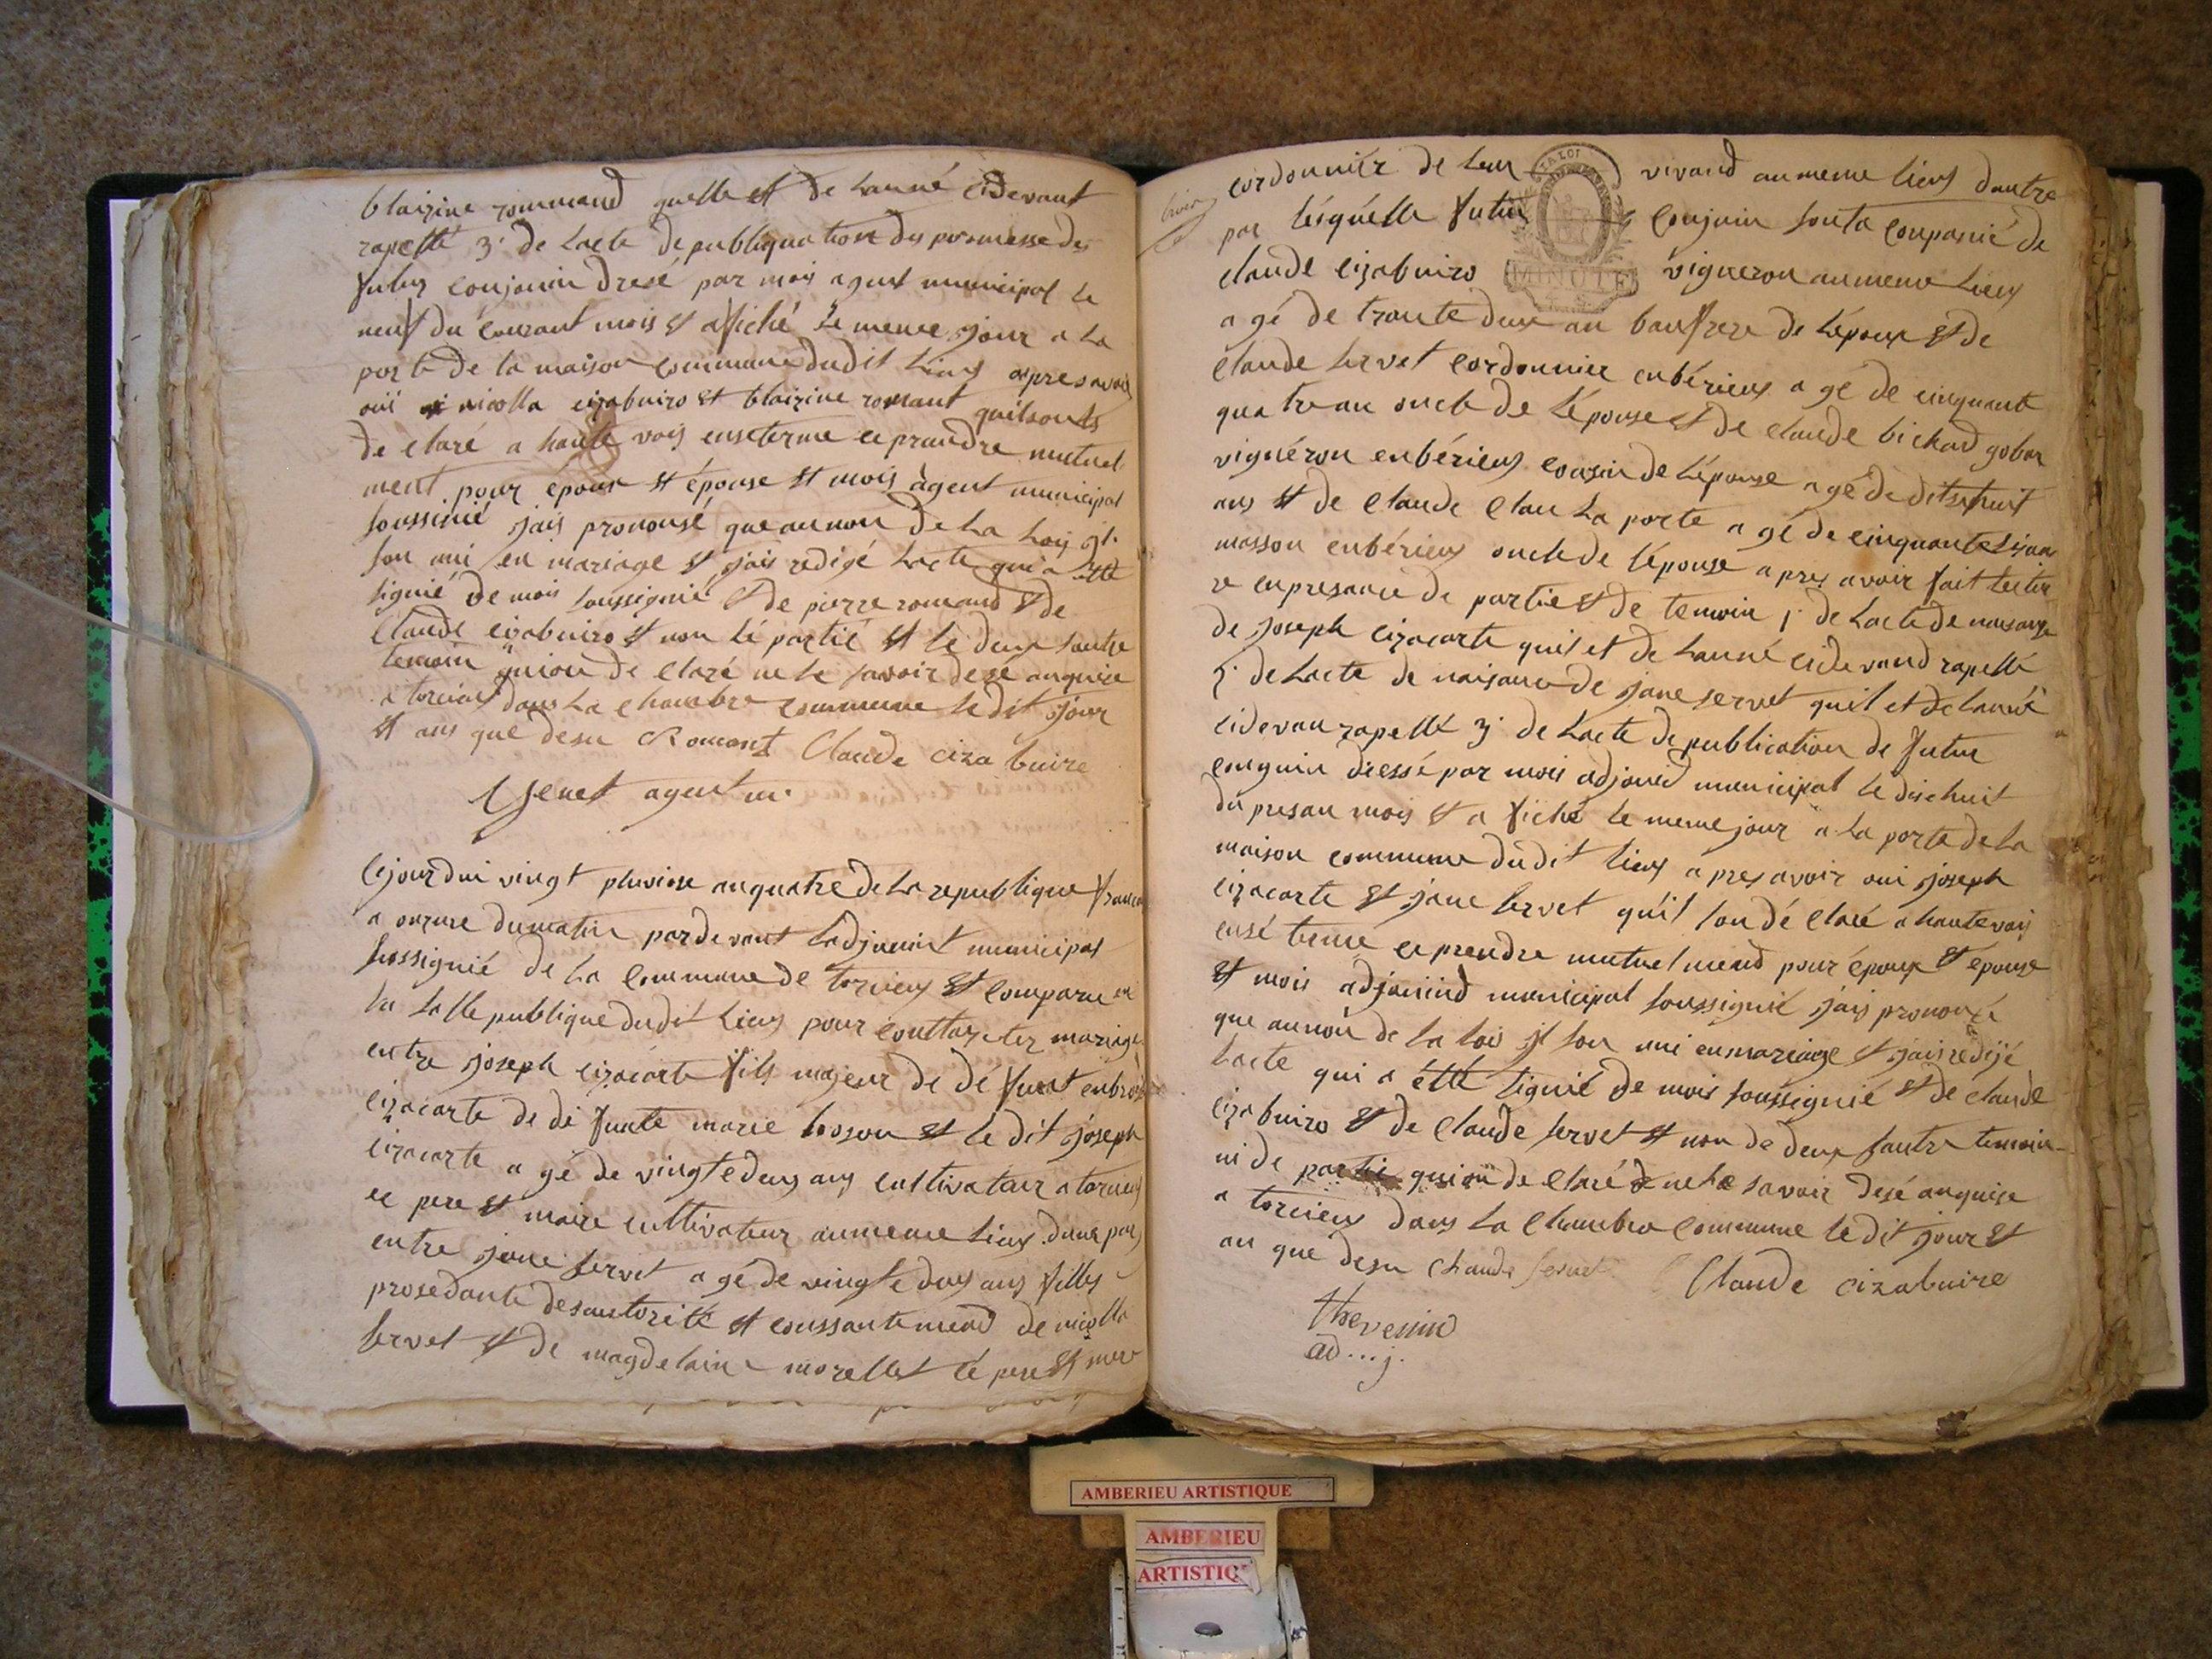 blaizine rommand quelle et de lanné cidevant
rapellé 3. de lacte de publiquation des promesse des
futur conjouin dresé par mois agent municipal le
neuf du courant mois et afiché le meme jour a la
porte de la maison commune dudit lieux apres avoir
oui nicolla cizabuiro et blaizine romant quilsonts
de claré a haute voix enseterme ce prandre mutuel
ment pour époux et épouse et mois agent municipal
soussinié jais pronousé que au nom de la loy jl
son uni en mariage et jais redigé lacte qui a etté
signié de mois soussignié et de pierre romand et de
Claude cizabuiro et non lé partié et le deux sautre
temoin quion de claré ne le savoir de sé anquire
a torcieux dans la chambre commune le dit jour
et ans que desu Romant Claude ciza buire
Genet agent m.
Cejourdui vingt pluviose anquatre de la republique francai
a onzure dumatin pardevant ladjouint municipal
sossignié de la commune de torcieux et comparu en
la salle publique dudit lieux pour conttarcter mariage
entre joseph cizacarte fils majeur de dé funt enbroi
cizacarte de dé funte marie boson et le dit joseph
cizacarte a gé de vingtedeux ans cultivateur a torcieux
ce pere et maire cultivateur aumeme lieux dune par
entre jane servet a gé de vingtedeux ans filly
prosedante desauttorité et coussantemend de nicolla
servet et de magdelaine morellet cé pere et mere
cordonnier de leur vivand aumeme lieux dautre
par lesquelle futur conjuin sonta conpanié de
claude cizabuiro vigneron aumeme lieux
a gé de trante deux an baufrere de lépoux et de
claude servet cordonnier enbérieux a gé de cinquante
quatre an oncle de lépouse et de claude bichard gobar
vignéron enbérieux cousin de lépouse a gé de ditsehuit
ans et de claude clau la porte a gé de cinquante
masson enbérieux oncle de lépouse apres avoir fait lectur
re enpresance de partie et de temoin 1. de lacte de naisange
de joseph cizacarte quil et de lanné cidevand rapellé
2. de lacte de naisance de jane servet quil et de lanné
cidevan rapellé 3. de lacte de publication de futur
conguin dressé par mois adjouind municipal le dischuit
du presan mois et a fiché le meme jour a la porte de la
maison commune dudit lieux apres avoir oui joseph
cizacarte et jane servet quil son dé claré a hautevois
ensé termé ce prendre mutuelmend pour époux et épouse
et mois adjouind municipal soussignié jais pronousé
que aunon de la loi jl son uni enmariage et jais redijé
lacte qui a étté signié de mois soussignié et de claude
cizabuiro et de claude servet et non de deux sautre temoin
ni de parti quion de claré ne le savoir desé anquire
a torcieux dans la chambre commune le dit jour et
an que desu Claude servet Claude cizabuire
thevenin
ad...j.
LA LOI
MINUTE
AMBERIEU ARTISTIQUE
AMBERIEU
ARTISTIQ